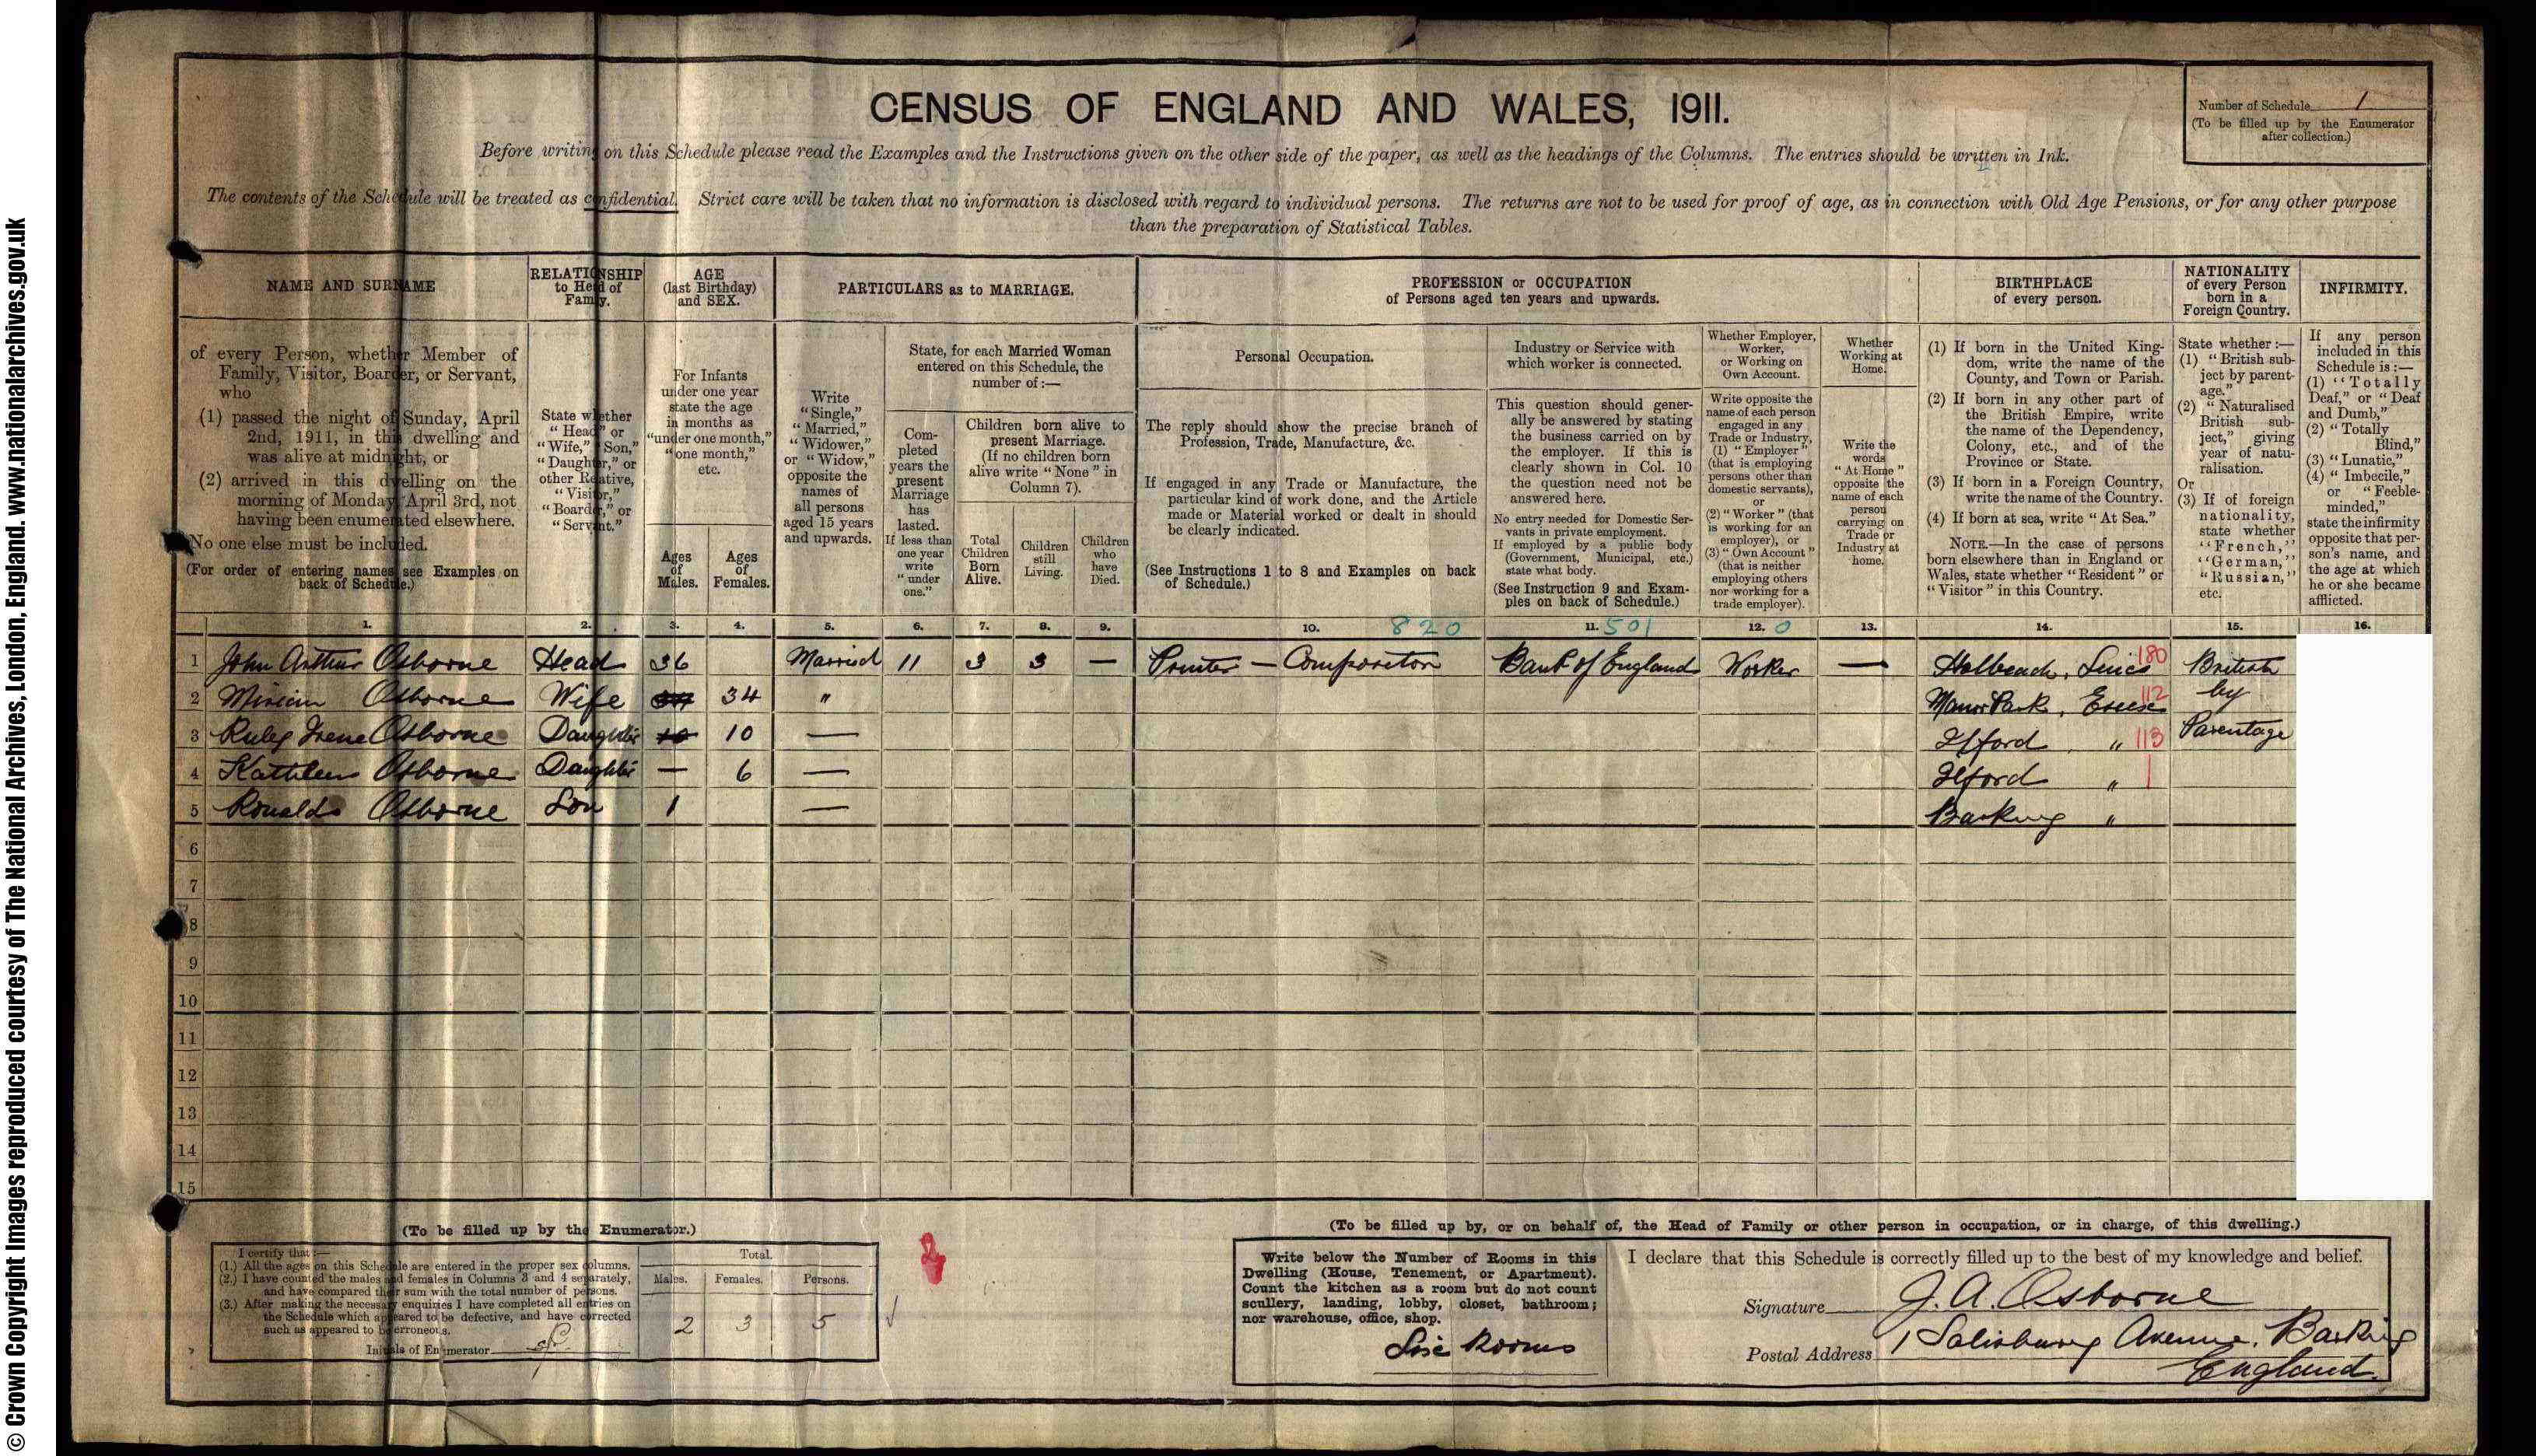 © Crown Copyright Images reproduced courtesy of The National Archives, London, England. www.nationalarchives.gov.uk
CENSUS OF ENGLAND AND WALES, 1911.
Number of Schedule 1
(To be filled up by the Enumerator
after collection.)
Before writing on this Schedule please read the Examples and the Instructions given on the other side of the paper, as well as the headings of the Columns. The entries should be written in Ink.
The contents of the Schedule will be treated as confidential. Strict care will be taken that no information is disclosed with regard to individual persons. The returns are not to be used for proof of age, as in connection with Old Age Pensions, or for any other purpose
than the preparation of Statistical Tables.
NAME AND SURNAME
of every Person, whether Member of
Family, Visitor, Boarder, or Servant,
who
(1) passed the night of Sunday, April
2nd, 1911, in this dwelling and
was alive at midnight, or
(2) arrived in this dwelling on the
morning of Monday, April 3rd, not
having been enumerated elsewhere.
No one else must be included.
(For order of entering names see Examples on
back of Schedule.)
RELATIONSHIP
to Head of
Family.
State whether
"Head," or
"Wife," "Son,"
"Daughter," or
other Relative,
"Visitor,"
"Boarder," or
"Servant."
AGE
(last Birthday)
and SEX.
For Infants
under one year
state the age
in months as
"under one month,"
"one month,"
etc.
Ages
of
Males.
Ages
of
Females.
PARTICULARS as to MARRIAGE.
Write
"Single,"
"Married,"
"Widower,"
or "Widow,"
opposite the
names of
all persons
aged 15 years
and upwards.
State, for each Married Woman
entered on this Schedule, the
number of:—
Com-
pleted
years the
present
Marriage
has
lasted.
If less than
one year
write
"under
one."
Children born alive to
present Marriage.
(If no children born
alive write "None" in
Column 7).
Total
Children
Born
Alive.
Children
still
Living.
Children
who
have
Died.
PROFESSION or OCCUPATION
of Persons aged ten years and upwards.
Personal Occupation.
The reply should show the precise branch of
Profession, Trade, Manufacture, &c.
If engaged in any Trade or Manufacture, the
particular kind of work done, and the Article
made or Material worked or dealt in should
be clearly indicated.
(See Instructions 1 to 8 and Examples on back
of Schedule.)
Industry or Service with
which worker is connected.
This question should gener-
ally be answered by stating
the business carried on by
the employer. If this is
clearly shown in Col. 10
the question need not be
answered here.
No entry needed for Domestic Ser-
vants in private employment.
If employed by a public body
(Government, Municipal, etc.)
state what body.
(See Instruction 9 and Exam-
ples on back of Schedule.)
Whether Employer,
Worker,
or Working on
Own Account.
Write opposite the
name of each person
engaged in any
Trade or Industry,
(1) "Employer"
(that is employing
persons other than
domestic servants),
or
(2) "Worker" (that
is working for an
employer), or
(3) "Own Account"
(that is neither
employing others
nor working for a
trade employer).
Whether
Working at
Home.
Write the
words
"At Home"
opposite the
name of each
person
carrying on
Trade or
Industry at
home.
BIRTHPLACE
of every person.
(1) If born in the United King-
dom, write the name of the
County, and Town or Parish.
(2) If born in any other part of
the British Empire, write
the name of the Dependency,
Colony, etc., and of the
Province or State.
(3) If born in a Foreign Country,
write the name of the Country.
(4) If born at sea, write "At Sea."
NOTE.—In the case of persons
born elsewhere than in England or
Wales, state whether "Resident" or
"Visitor" in this Country.
NATIONALITY
of every Person
born in a
Foreign Country.
State whether:—
(1) "British sub-
ject by parent-
age."
(2) "Naturalised
British sub-
ject," giving
year of natu-
ralisation.
Or
(3) If of foreign
nationality,
state whether
"French,"
"German,"
"Russian,"
etc.
INFIRMITY.
If any person
included in this
Schedule is:—
(1) "Totally
Deaf," or "Deaf
and Dumb,"
(2) "Totally
Blind,"
(3) "Lunatic,"
(4) "Imbecile,"
or "Feeble-
minded,"
state the infirmity
opposite that per-
son's name, and
the age at which
he or she became
afflicted.
1. 2. 3. 4. 5. 6. 7. 8. 9. 10. 820 11. 501 12. 0 13. 14. 15. 16.
1 John Arthur Osborne Head 36 Married 11 3 3 — Printer — Compositor Bank of England Worker — Holbeach, Lincs 180 British
2 Miriam Osborne Wife 34 " Manor Park, Essex 112 by
3 Ruby Irene Osborne Daughter 10 — Ilford " 113 Parentage
4 Kathleen Osborne Daughter — 6 — Ilford "
5 Ronald Osborne Son 1 — Barking "
6
7
8
9
10
11
12
13
14
15
(To be filled up by the Enumerator.)
I certify that:—
(1.) All the ages on this Schedule are entered in the proper sex columns.
(2.) I have counted the males and females in Columns 3 and 4 separately,
and have compared their sum with the total number of persons.
(3.) After making the necessary enquiries I have completed all entries on
the Schedule which appeared to be defective, and have corrected
such as appeared to be erroneous.
Initials of Enumerator
Total.
Males. Females. Persons.
2 3 5
(To be filled up by, or on behalf of, the Head of Family or other person in occupation, or in charge, of this dwelling.)
Write below the Number of Rooms in this
Dwelling (House, Tenement, or Apartment).
Count the kitchen as a room but do not count
scullery, landing, lobby, closet, bathroom;
nor warehouse, office, shop.
Six Rooms
I declare that this Schedule is correctly filled up to the best of my knowledge and belief.
Signature J. A. Osborne
Postal Address 1 Salisbury Avenue, Barking
England.